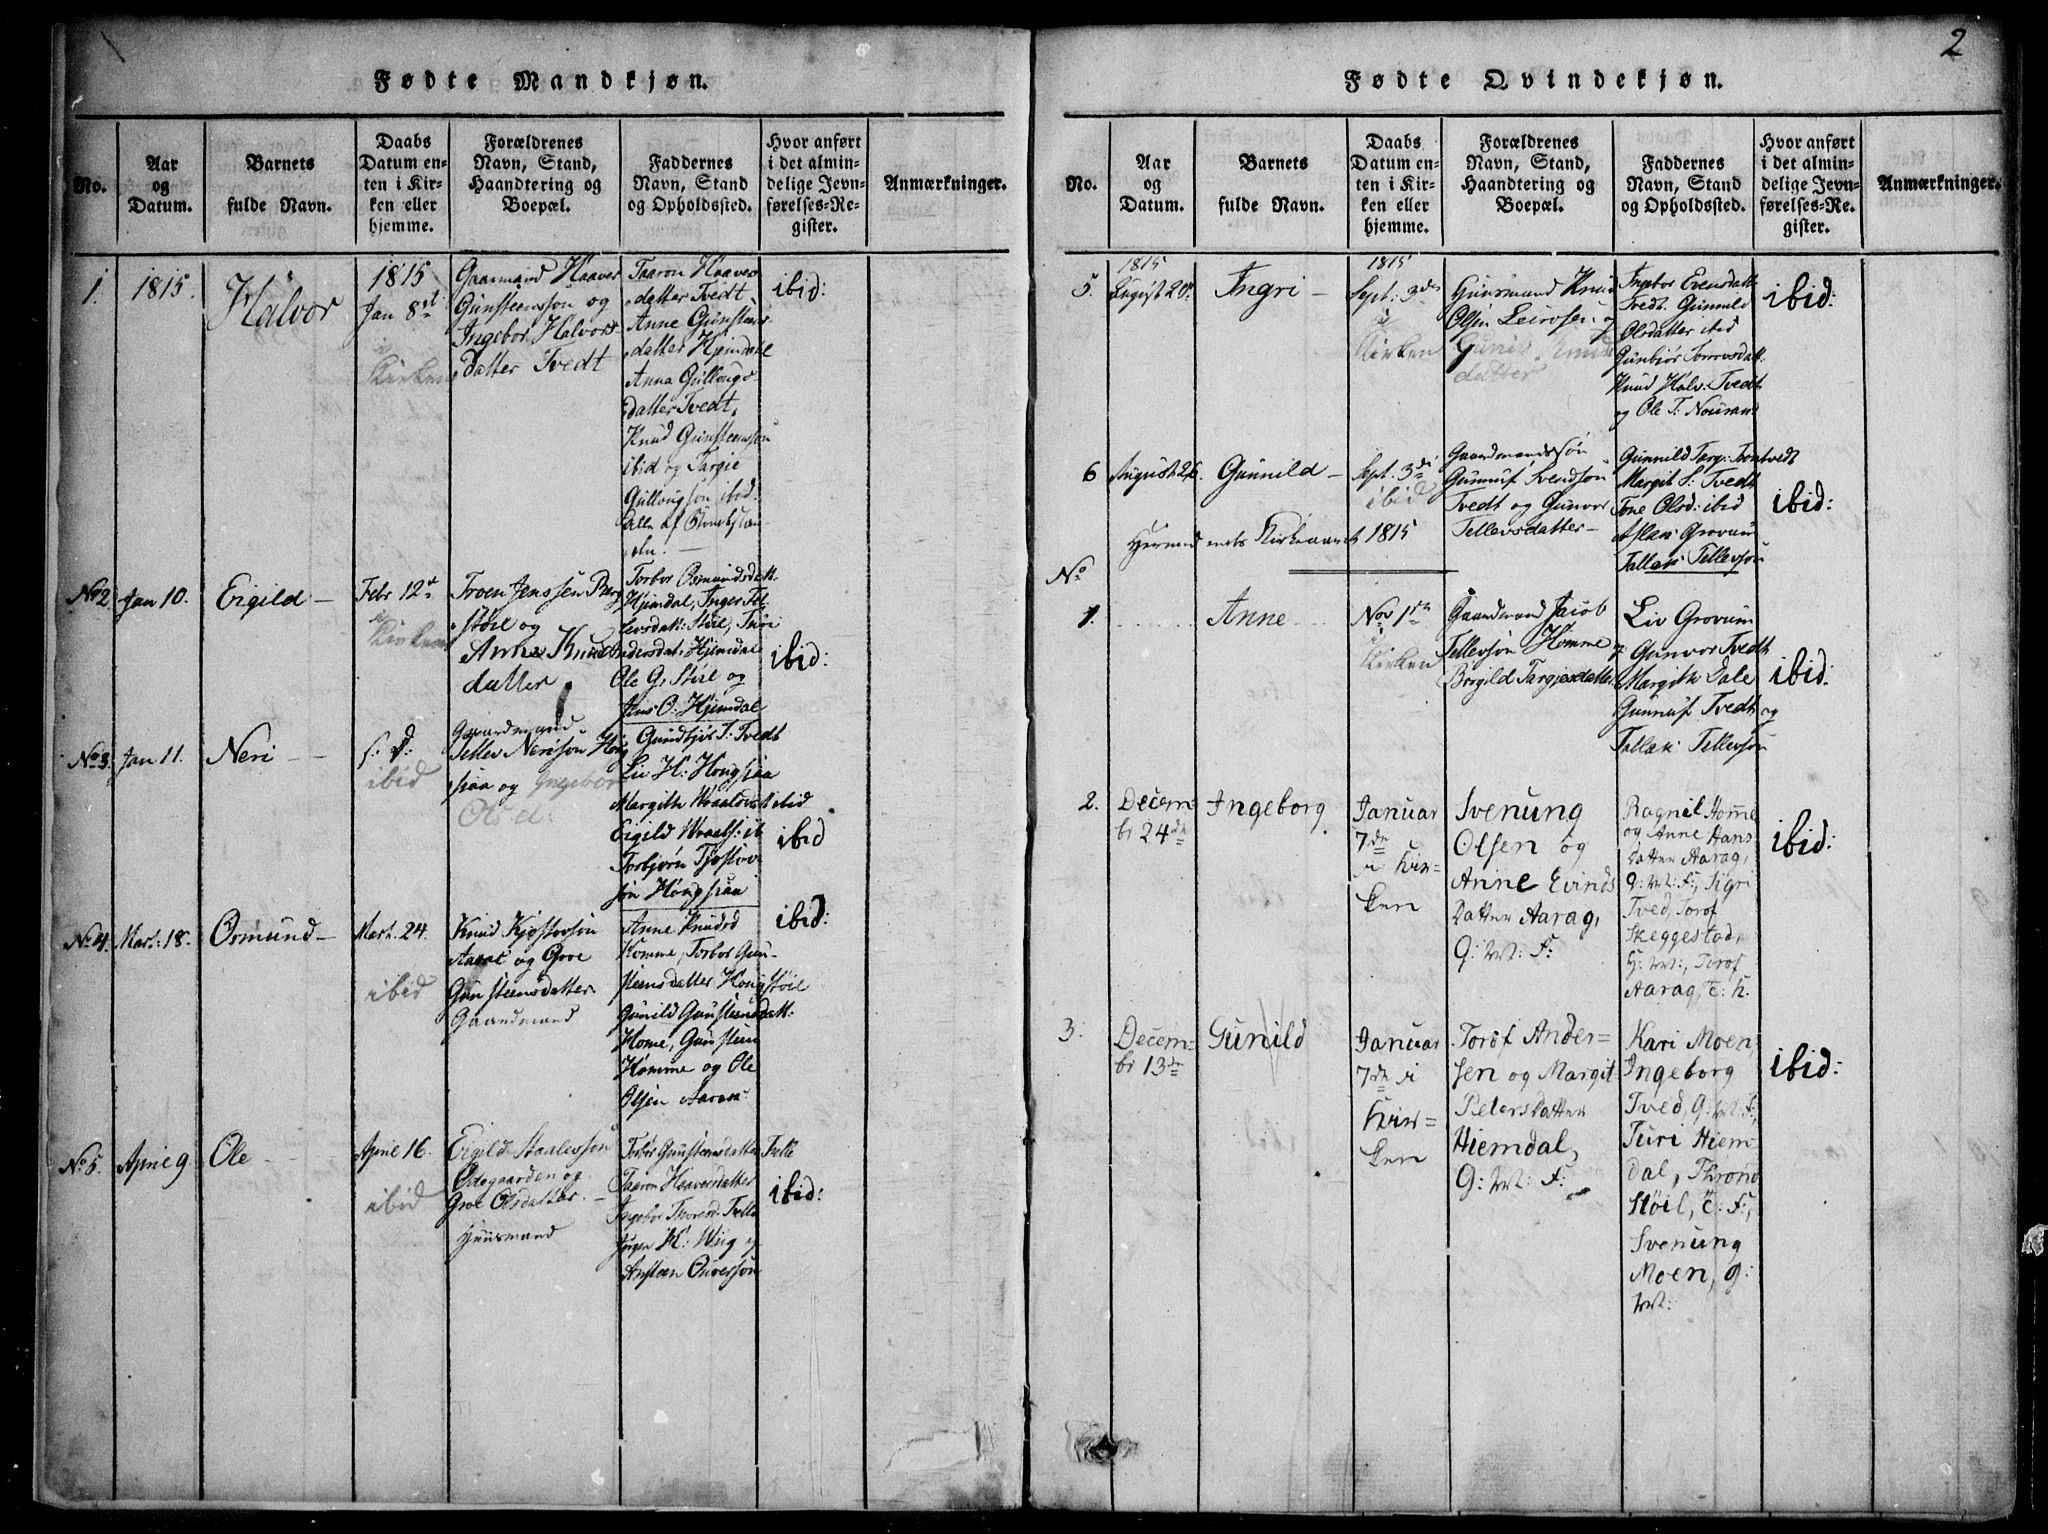 Fødte Mandkjøn.
No.
Aar
og
Datum.
Barnets
fulde Navn.
Daabs
Datum en-
ten i Kir-
ken eller
hjemme.
Forældrenes
Navn, Stand,
Haandtering og
Boepæl.
Faddernes
Navn, Stand
og Opholdssted.
Hvor anført
i det almin-
delige Jevn-
førelses-Re-
gister.
Anmærkninger.
1.
1815.
Halvor
1815
Jan 8
i
Kirken
Gaarmand Haaver
Gunsteensøn og
Ingebor Halvors
datter Tvedt
Taaron Haavers
datter Tvedt
Anne Gunsteens
datter Hjemdahl
Anna Gullougs
datter Tvedt,
Knud Gunsteensøn
ibid og Targie
Gullougsøn ibid.
alle af
ibid:
No 2
Jan 10.
Eigild
Febr 12
i Kirken
Troen Jenssen Berg
støil og
Anne Knuds
datter
Torbor Osmundsdatt.
Hjemdal, Inger Tel
levsdatt: Støil, Turi
Andersdat: Hjemdal
Ole G: Støil og
Jens O: Hjemdal
ibid:
No 3.
Jan 11.
Neri
s: d:
ibid
Gaardmand
Tellev Nerisøn Høng
siaa og Ingebor
Olsd:
T: Tvedt
Liv H: Høngsiaa
Margith ibid
Eigild
Torbjørn Tjøstov
søn Høngsiaa
ibid
No 4.
Mart: 18.
Osmund
Mart. 24.
ibid
Knud Kjøstovsøn
og Groe
Gunsteensdatter
Gaardmand
Anne Knudsd
Homme, Torbor Gun-
steensdatter Hougstøil
Gunild Gunsteensdatt:
Home, Gunsteen
Homme og Ole
Olsen Aarak
ibid:
No 5.
April 9.
Ole
April 16.
ibid
Eigild Staalessøn
Ødegaarden og
Groe Olsdatter
Huusmand
Torbor Gunsteensdatter
Taaron Haaversdatter
Ingebor Thoresd:
Jørgen
ibid:
2
Fødte Qvindekjøn.
No.
Aar
og
Datum.
Barnets
fulde Navn.
Daabs
Datum en-
ten i Kir-
ken eller
hjemme.
Forældrenes
Navn, Stand,
Haandtering og
Boepæl.
Faddernes
Navn, Stand
og Opholdssted.
Hvor anført
i det almin-
delige Jevn-
førelses-Re-
gister.
Anmærkninger.
5.
1815
August 20
Ingri
1815
Sept: 3
i
Kirken
Huusmand Knud
Olsen og
Knuds
datter
Ingebor Evensdatt
Tvedt. Gunnild
Olsdatter ibid
Gunbjør Torovsdatt.
Knud Halv: Tvedt
og Ole T:
ibid:
6
August 26.
Gunnild
Sept. 3
ibid
Gaardmandssøn
Gunnuf Svendsøn
Tvedt og Gunvor
Tellevsdatter
Gunnild Targ: Trontvedt
Margit S: Tvedt
Tone Olsd: ibid
Aslak Grovum
Tallak Tellevsøn
ibid:
Hermed endes Kirkeaaret 1815
No
1.
Anne
Nov 1
i
Kirken
Gaardmand Jacob
Tellevsøn Homme
Borgild Targiesdatter
Liv Grovum
Gunvor Tvedt
Margith Dale
Gunnuf Tvedt og
Tallak Tellevsøn
ibid:
2.
Decem-
br 24de
Ingeborg
Januar
7de
i Kir-
ken
Svenung
Olsen og
Anne Evinds
Datter Aarag,
G: M: F:
Ragnil Homme
og Anne Hans
Datter Aarag,
G: M: F:, Sigri
Tved, Torof
Skeggestad,
G: M:, Torof
Aarag, E: K.
ibid:
3.
Decem-
br 13de
Gunild
Januar
7de i
Kir-
ken
Torof Ander-
sen og Margit
Peters Datter
Hiemdal,
G: M: F:
Kari Moen,
Ingeborg
Tved, G: M: F:,
Turi Hiem-
dal, Thrond
Støil, E: F:,
Svenung
Moen, G:
M:
ibid: